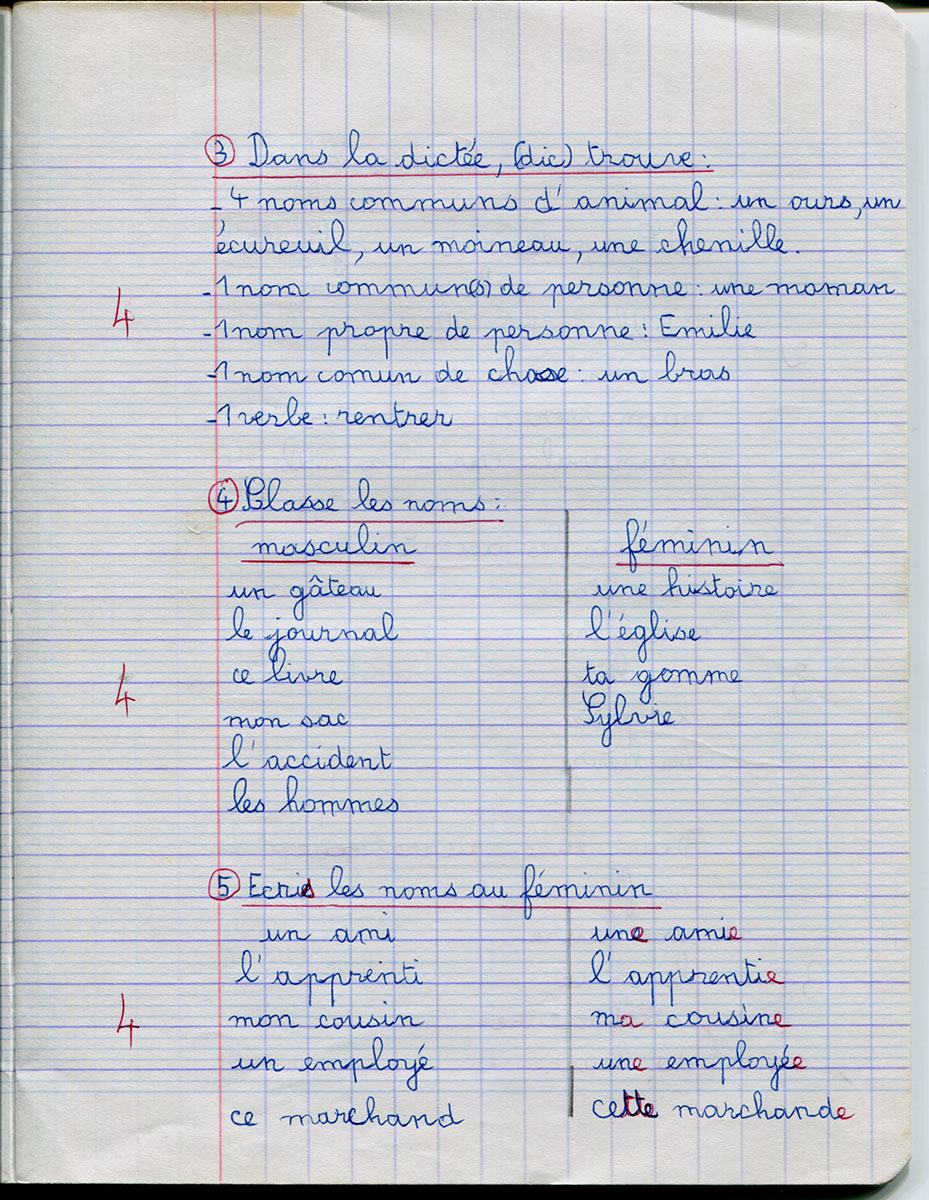 ③ Dans la dictée, (dic) trouve :
- 4 noms communs d'animal : un ours, un
écureuil, un moineau, une chenille.
- 1 nom commun(s) de personne : une maman
4
- 1 nom propre de personne : Emilie
- 1 nom comun de chose : un bras
- 1 verbe : rentrer
④ Classe les noms :
masculin féminin
un gâteau une histoire
le journal l'église
4 ce livre ta gomme
mon sac Sylvie
l'accident
les hommes
⑤ Ecris les noms au féminin
un ami une amie
l'apprenti l'apprentie
4 mon cousin ma cousine
un employé une employée
ce marchand cette marchande